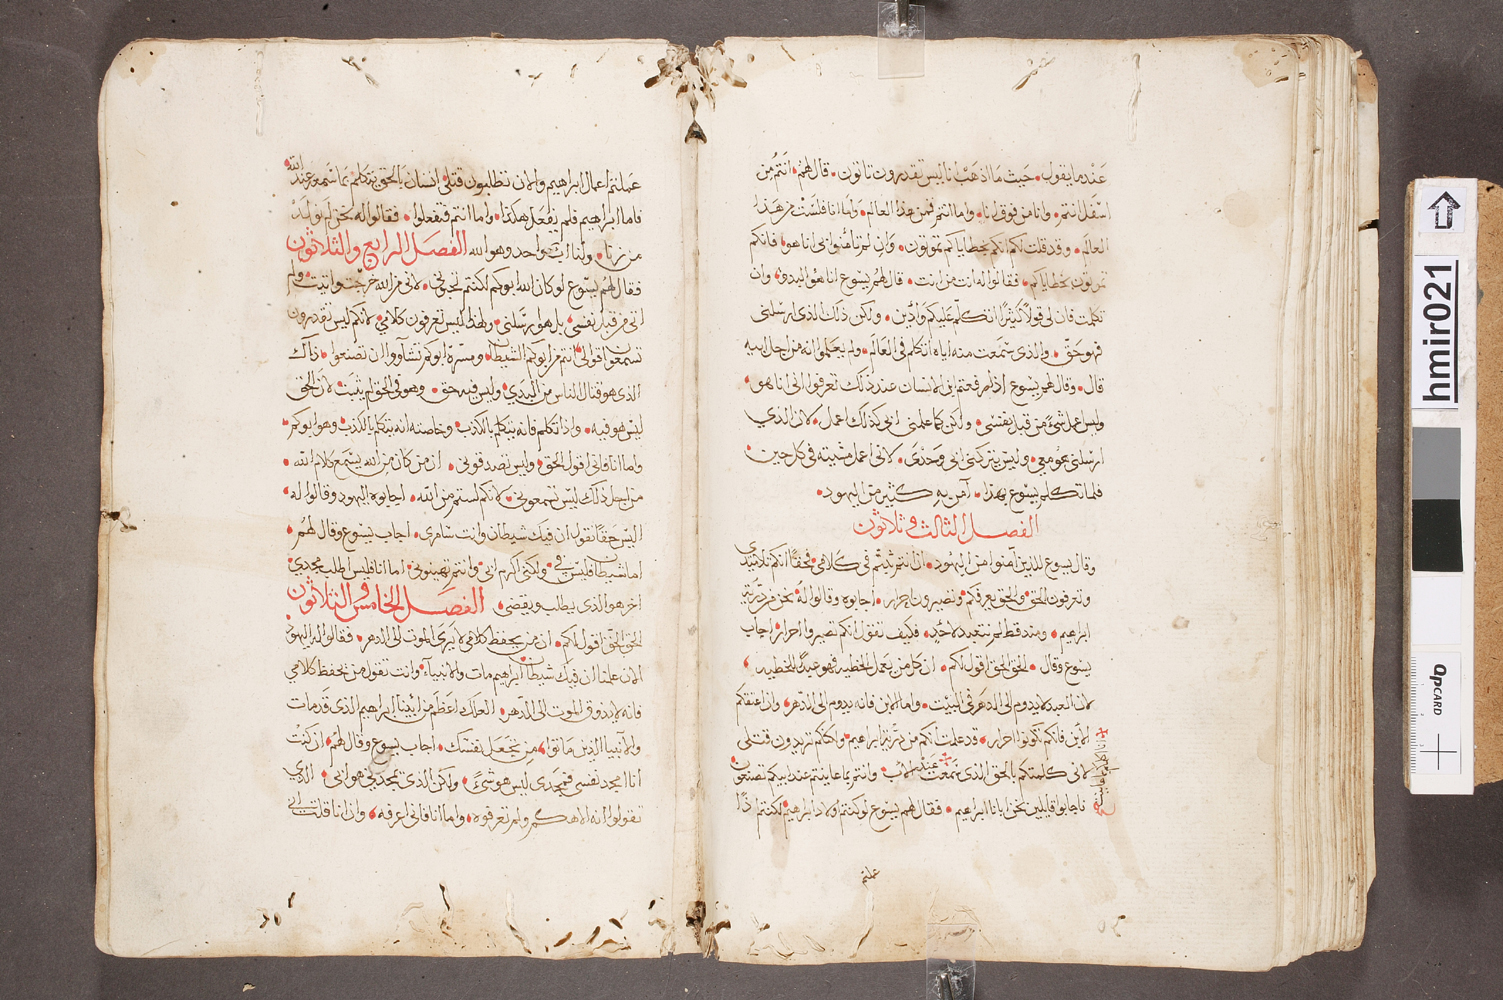 عندما يقول حيث ما اذهب انا ليس تقدرون تاتون قال لهم انتم من
اسفل انتم وانا من فوق انا واما انتم فمن هذا العالم واما انا فلست من هذا
العالم وقد قلت لكم انكم بخطاياكم تموتون وان لم تامنوا بي انا هو فانكم
تموتون بخطاياكم فقالوا له انت من انت قال لهم يسوع انا هو البدو وان
تكلمت فان لي قولاً كثيرًا اتكلم عليكم وادين ولكن ذاك الذي ارسلني
فهو حق والذي سمعت منه اياه اتكلم في العالم ولم يعلموا انه من اجل ابيه
قال وقال لهم يسوع اذا ما رفعتم ابن الانسان عند ذلك تعرفوا اني انا هو
وليس اعمل شيءً من قبل نفسي ولكن كما علمني ابي كذلك اعمل لان الذي
ارسلني هو معي وليس يتركني ابي وحدى لاني اعمل مشيته في كل حين
فلما تكلم يسوع بهذا آمن به كثير من اليهود
الفصل الثالث وثلاثون
وقال يسوع للذين آمنوا من اليهود ان انتم ثبتم في كلامي فحقًا انكم تلاميدي
وتعرفون الحق والحق يعرفكم وتصيرون احرار اجابوه وقالوا له نحن من ذرية
ابراهيم وما قط لم نتعبد لاحدٍ فكيف تقول انكم تصيروا احرار اجاب
يسوع وقال الحق الحق اقول لكم ان كل من يعمل الخطيه فهو عبدًا للخطيه
لان العبد لا يدوم الى الدهر في البيت واما الابن فانه يدوم الى الدهر وان اعتقكم
الابن فانكم تكونوا احرار قد علمت انكم من ذرية ابراهيم ولكنكم تريدون قتلي
لاني كلمتكم بالحق الذي سمعت عند الاب وانتم بما عاينتم عند ابيكم تصنعون
فاجابوا قايلين نحن ابانا ابراهيم فقال لهم يسوع لو كنتم اولاد ابراهيم لكنتم
عملتم
عملتم اعمال ابراهيم والان تطلبون قتلي انسان بالحق يتكلم بما سمع من عند الله
فاما ابراهيم فلم يفعل هكذا واما انتم فتفعلوا فقالوا له نحن لم نولد
من زنا ولنا اب واحد وهو الله الفصل الرابع والثلاثون
فقال لهم يسوع لو كان الله ابوكم لكنتم تحبوني لاني من الله خرجت واتيت ولم
اتي من قبل نفسي بل هو ارسلني ولهذا ليس تعرفون كلامي لانكم ليس تقدرون
تسمعوا قولي انتم من ابوكم الشيطان ومسرة ابوكم تشاؤوا ان تصنعوا ذاك
الذي هو قتال الناس من البدي وليس فيه حق وهو في الحق لم يثبت لان الحق
ليس هو فيه واذا تكلم فانه يتكلم بالكذب وخاصته انه يتكلم بالكذب وهو ابوكم
واما انا فاني اقول الحق وليس تصدقوني ان من كان من الله يسمع كلام الله
من اجل ذلك ليس تسمعوني لانكم لستم من الله اجابوه اليهود وقالوا له
اليس حقًا نقول ان فيك شيطان وانت سامري اجاب يسوع وقال لهم
اما شيطان فليس في ولكني اكرم ابي وانتم تهينوني اما انا فليس اطلب مجدي
اخر هو الذي يطلب ويقضي الفصل الخامس والثلاثون
الحق الحق اقول لكم ان من يحفظ كلامي لا يرى الموت الى الدهر فقالوا له اليهود
الان علمنا ان فيك شيطان ابراهيم مات والانبياء وانت تقول من يحفظ كلامي
فانه لا يذوق الموت الى الدهر العلك اعظم من ابينا ابراهيم الذي قد مات
والانبيا الذين ماتوا من تجعل نفسك اجاب يسوع وقال لهم ان كنت
انا امجد نفسي فمجدي ليس هو شيءً ولكن الذي يمجدني هو ابي الذي
تقولوا انه الاهكم ولم تعرفوه واما انا فاني اعرفه وان انا قلت اني
hmir021
dpa
CARD